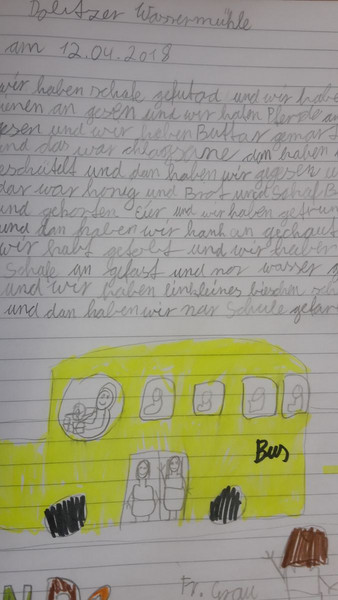 Dölitzer Wassermühle
am 12.04.2018
wir haben schafe gefutad und wir habe
ünen an gesen und wir haben Pferde an
gesen und wir heben Buttar gemart
und das war schlagsane dan haben
eschütelt und dan haben wir gegesen
dar war honig und Brot und Schaf
und gekochten Eier und wir haben getrun
und dan haben wir an
wir habt getobt und wir haben
Schafe an gefast und nor wasser
und wir haben ein kleines bisschen
und dan haben wir nar Schule gefar
Bus
Fr. Grau